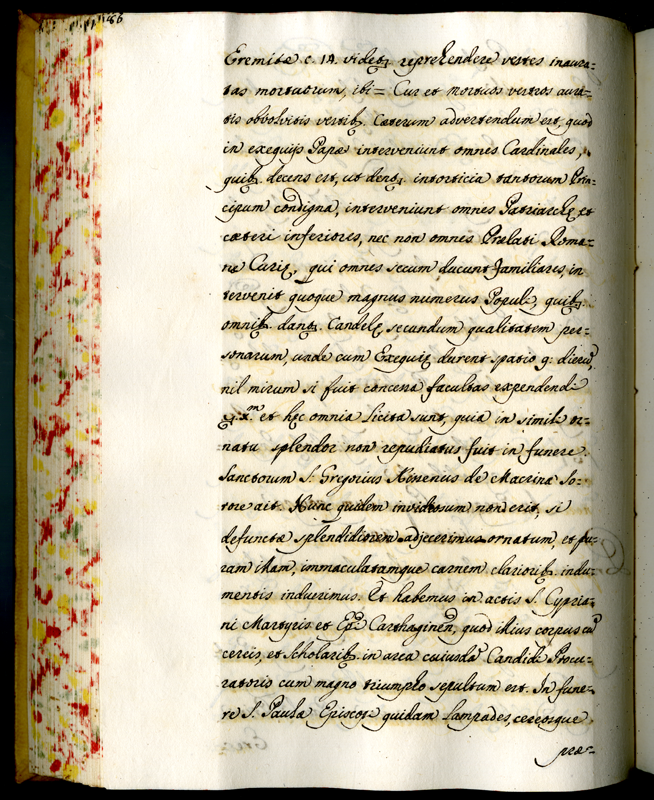 Eremitæ c. 14. videtꝫ reprehendere vestes inaura=
tas mortuorum, ibi = Cur et mortuos vestros aura=
tis obvolvitis vestibꝫ. Cæterum advertendum est, quod
in exequijs Papæ interveniunt omnes Cardinales,
quibꝫ. decens est, ut dentꝫ. intorticia tantorum Prin=
cipum condigna, interveniunt omnes Patriarchę et
cæteri inferiores, nec non omnes Prælati Roma=
næ Curię, qui omnes secum ducunt familiares, in
tervenit quoque magnus numerus Populi, quibꝫ.
omnibꝫ. dantꝫ. Candelę secundum qualitatem per=
sonarum, unde cum Exequię durent spatio 9: dierũ,
nil mirum si fuit concessa facultas expendendi
x.ᵐ et hęc omnia licita sunt, quia in simili or=
natu splendor non repudiatus fuit in funere
Sanctorum S. Gregorius Nissenus de Macrina So=
rore ait. Nunc quidem invidiosum non erit, si
defunctæ splendidiorem adjecerimus ornatum, et pu=
ram illam, immaculatamque carnem claroribꝫ. indu=
mentis induerimus. Et habemus in actis S. Cypria=
ni Martyris et Epĩ Carthaginen̄, quod illius corpus cũ
cereis, et Scholaribꝫ. in area cuiusdã Candidi Procu=
ratoris cum magno triumpho sepultum est. In fune=
re S. Paulæ Episcopi quidam lampades, cereosque
præ=